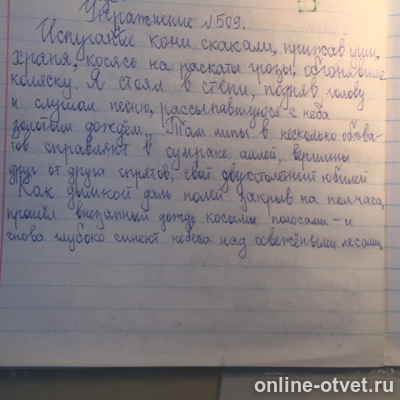 Упражнение №509.
Испуганные кони скакали, прижав уши,
храпя, косясь на раскаты грозы, обгонявшие
коляску. Я стоял в степи, подняв голову
и слушал песню, рассыпавшуюся с неба
золотым дождём. Там липы в несколько обхва-
тов справляют в сумраке аллей, вершины
друг от друга спрятов, свой двухстолетний юбилей
Как дымкой даль полей закрыв на полчаса,
прошёл внезапный дождь косыми полосами - и
снова глубоко синеют небеса над освежёнными лесами,
online-otvet.ru